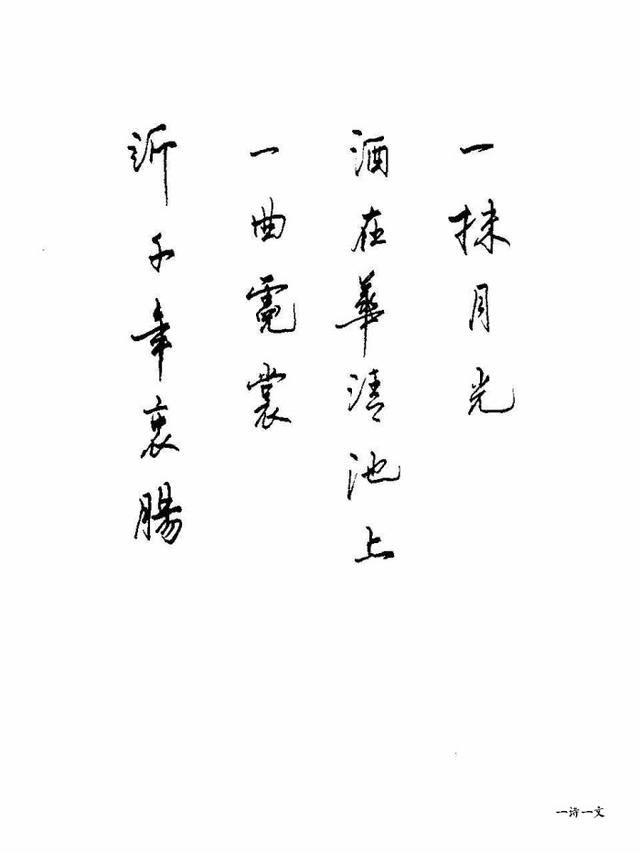 一抹月光
洒在華清池上
一曲霓裳
訴千年衷腸
一诗一文